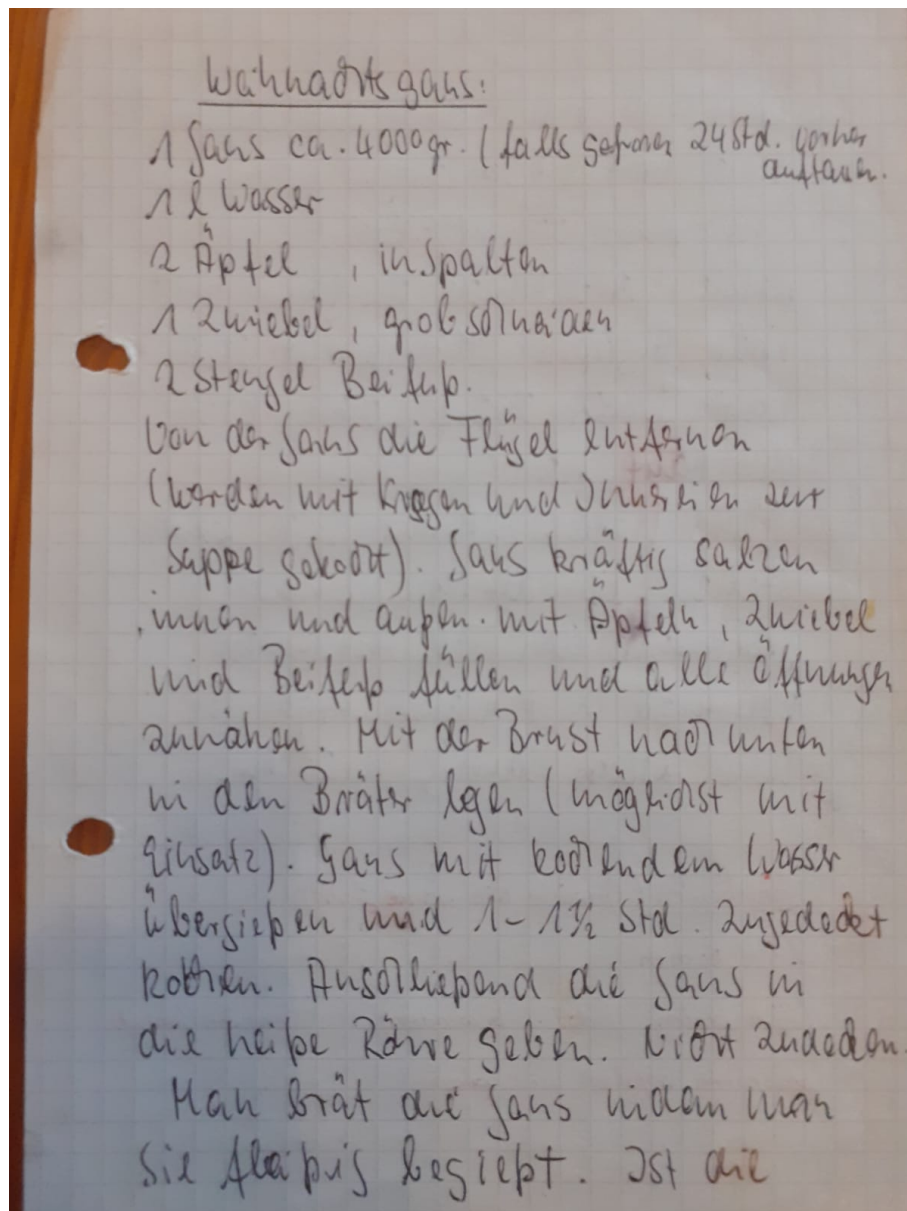 Weihnachtsgans:
1 Gans ca. 4000 gr. (falls gefroren 24 Std. vorher
auftauen.
1 l Wasser
2 Äpfel, in Spalten
1 Zwiebel, grob schneiden
2 Stengel Beifuß.
Von der Gans die Flügel entfernen
(werden mit Kragen und Innereien zur
Suppe gekocht). Gans kräftig salzen
, innen und außen. mit Äpfeln, Zwiebel
und Beifuß füllen und alle Öffnungen
zunähen. Mit der Brust nach unten
in den Bräter legen (möglichst mit
Einsatz). Gans mit kochendem Wasser
übergießen und 1-1½ Std. zugedeckt
kochen. Anschließend die Gans in
die heiße Röhre geben. Nicht zudecken.
Man brät die Gans indem man
sie fleißig begießt. Ist die